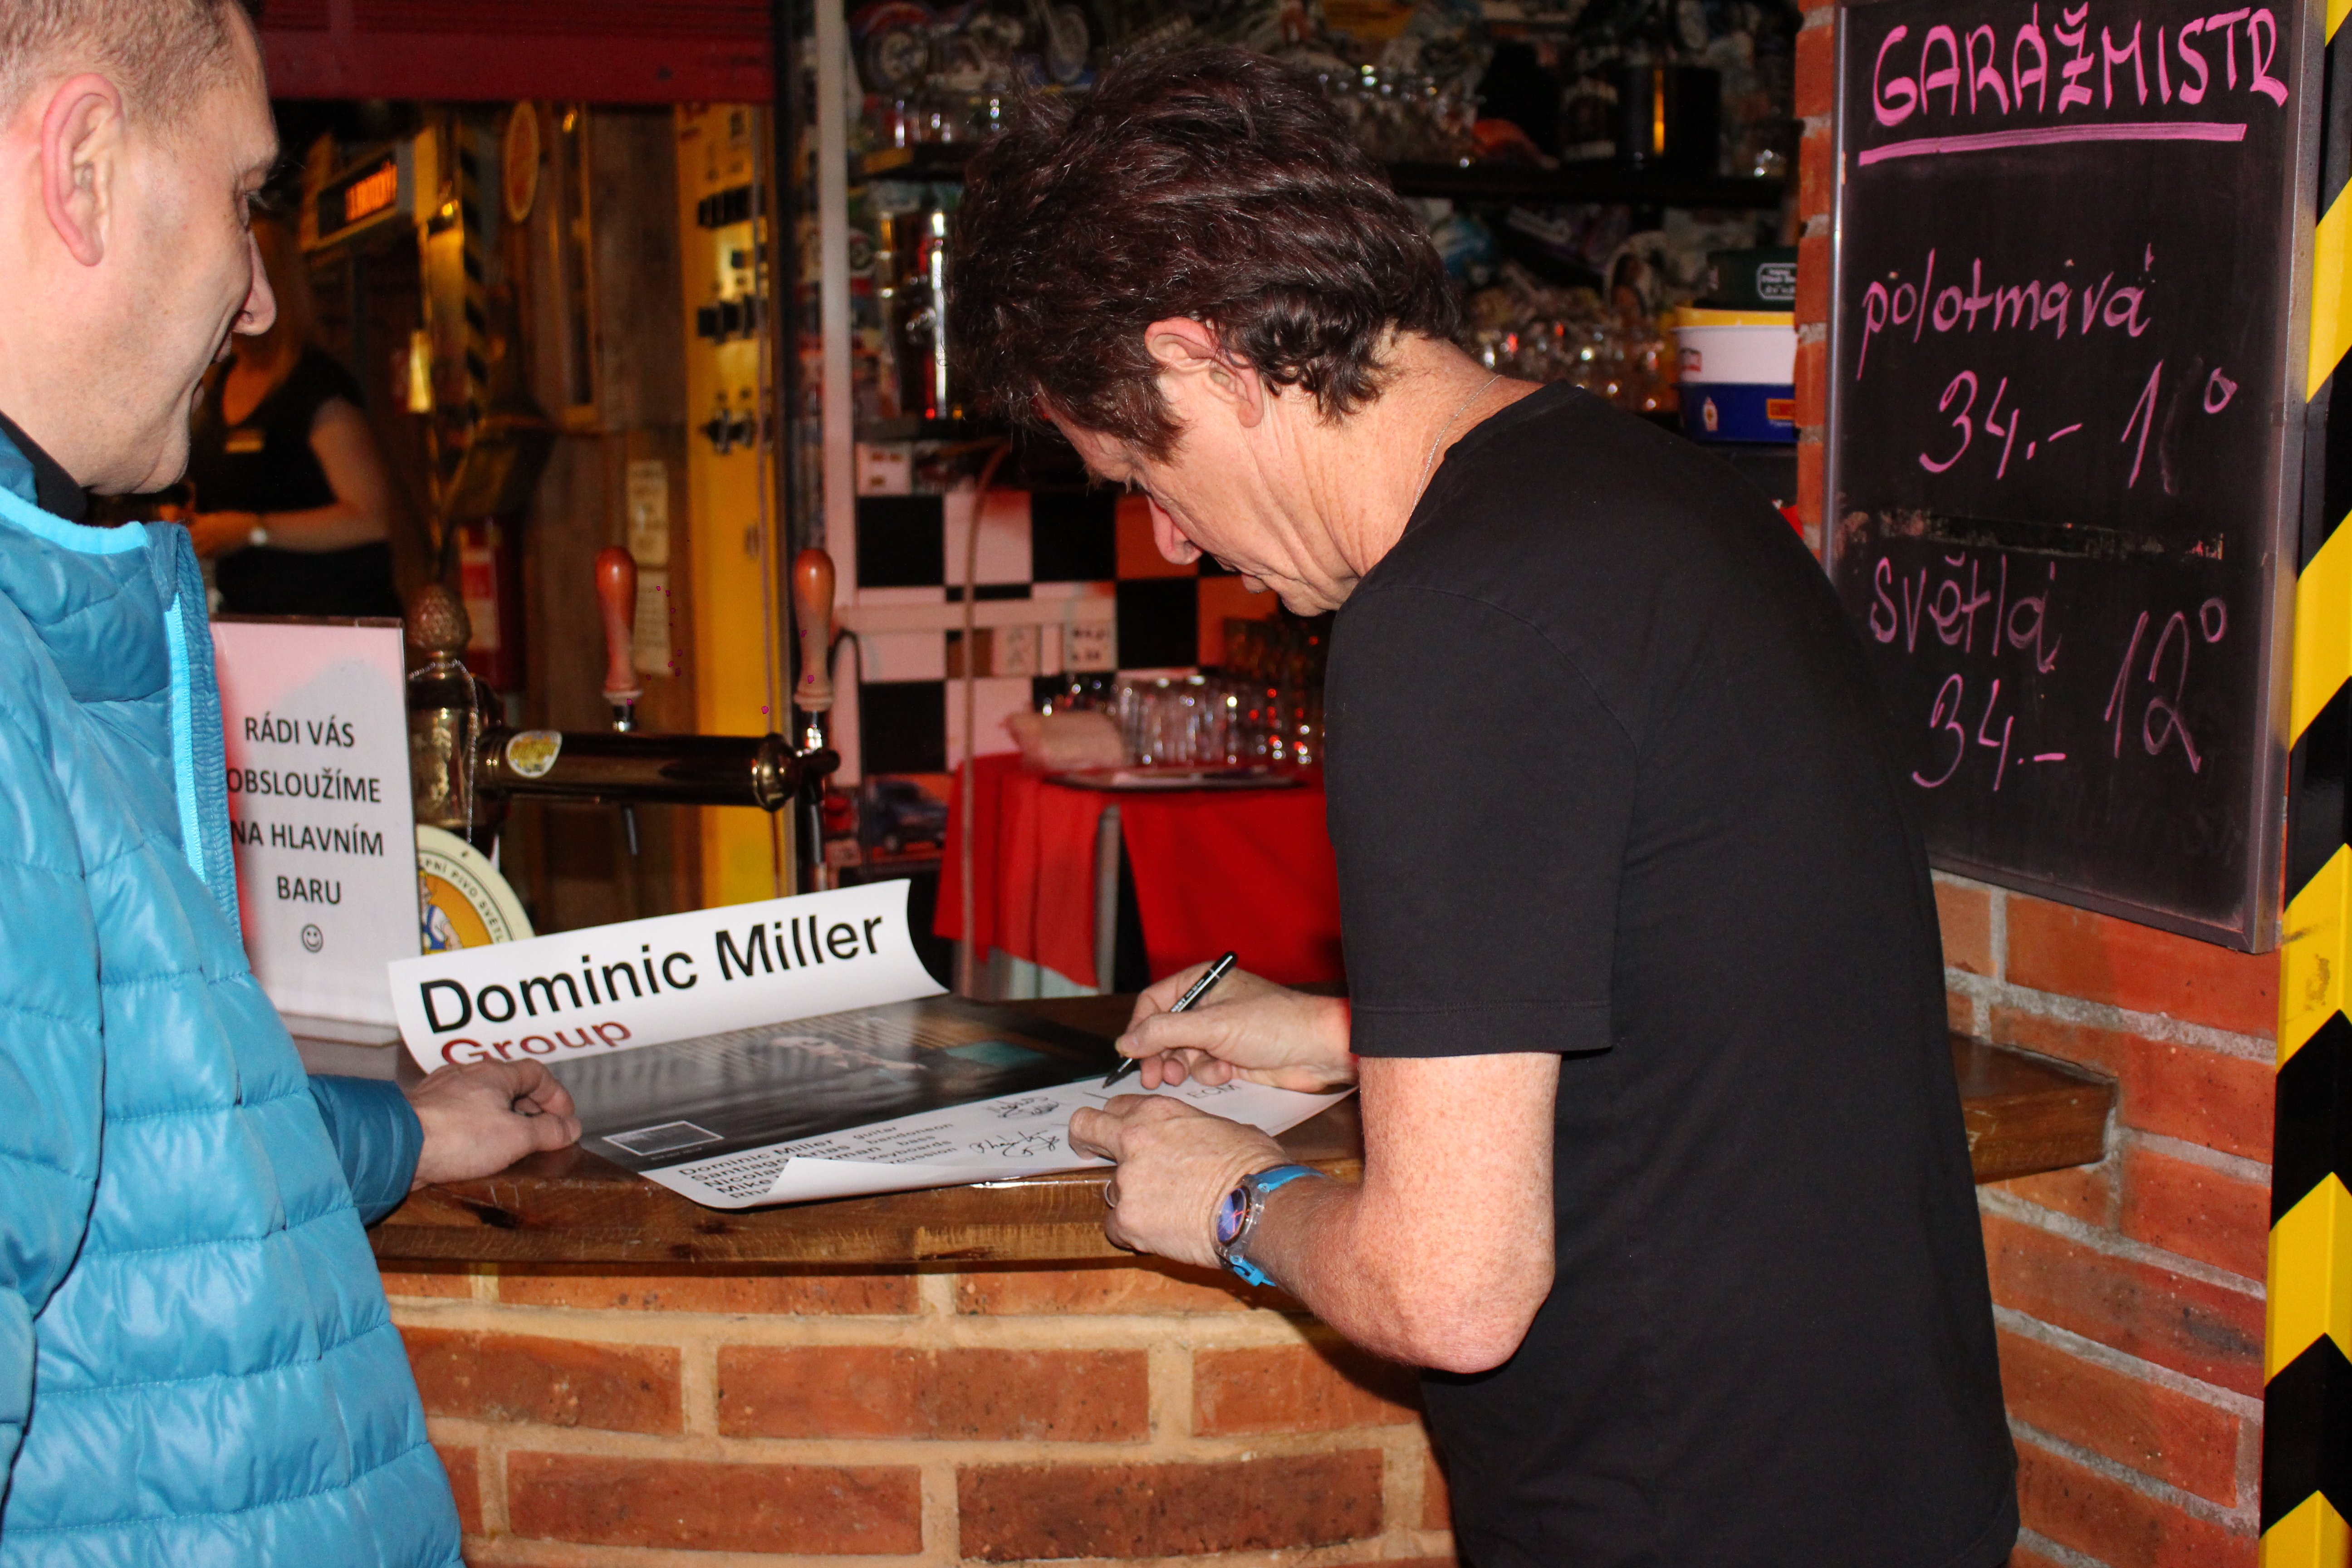 GARÁŽMISTR
polotmavá
34.- 11°
světlá
34.- 12°
RÁDI VÁS
OBSLOUŽÍME
NA HLAVNÍM
BARU
Dominic Miller
Group
ECM
Dominic Miller guitar
Santiago Arias bandoneon
Nicolas bass
Mike keyboards
PIVO SVĚTL